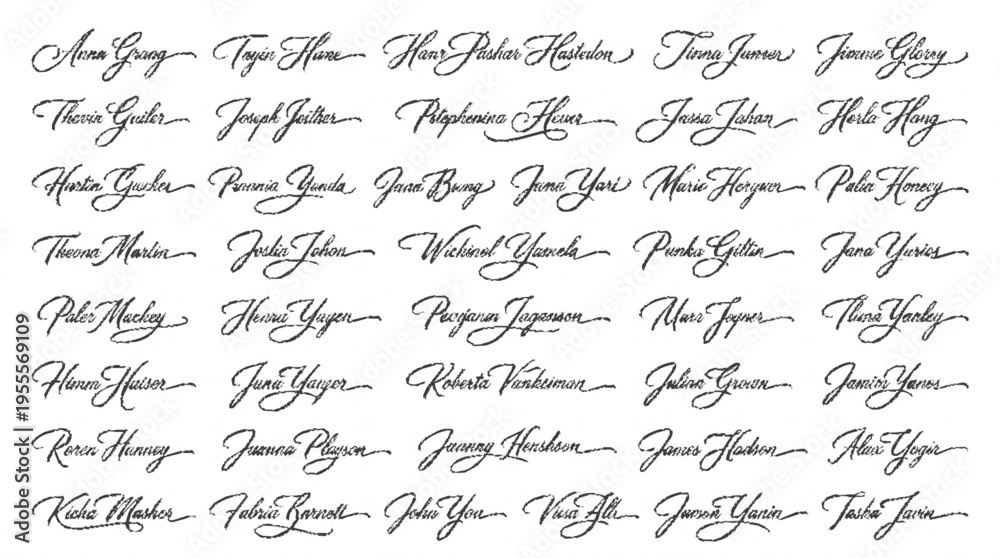 Anna Grang Tayin Hane Hanr Pashar Hastedon Tinna Junrer Jimme Glorry
Thevin Guiler Joseph Jeither Pstephenina Hewer Jassa Johan Horla Hang
Hartin Gucker Prannia Yanda Jann Bung Jana Yari Marie Hergwer Palia Honecy
Theona Martin Joslin Johon Wichinol Yamela Punka Giltin Jana Yurios
Paler Mackey Henra Yuyen Pecojanın Jaganson Marr Jeyner Thma Yanley
Himm Haiser Juna Yanger Koberta Vankeiman Julian Grown Jamior Yanos
Roren Hannay Juanna Playson Juanny Henshson James Hadson Alax Yogir
Kicha Masher Fabria Barnett John You Vusa Alh Jamon Yanin Tasha Javin
Adobe Stock | #1955569109